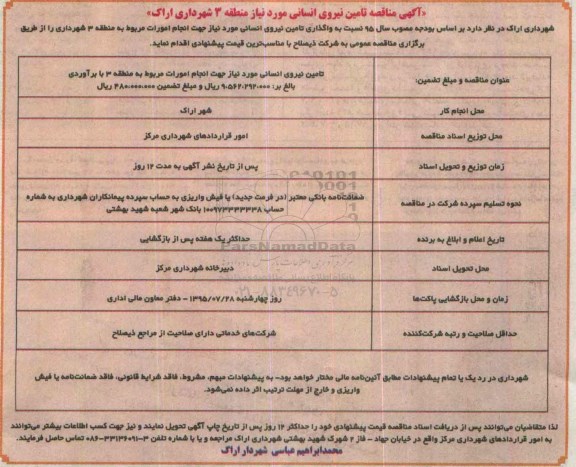 «آگهی مناقصه تامین نیروی انسانی مورد نیاز منطقه ۳ شهرداری اراک»
شهرداری اراک در نظر دارد بر اساس بودجه مصوب سال ۹۵ نسبت به واگذاری تامین نیروی انسانی مورد نیاز جهت انجام امورات مربوط به منطقه ۳ شهرداری را از طریق
برگزاری مناقصه عمومی به شرکت ذیصلاح با مناسب‌ترین قیمت پیشنهادی اقدام نماید.
عنوان مناقصه و مبلغ تضمین:
تامین نیروی انسانی مورد نیاز جهت انجام امورات مربوط به منطقه ۳ با برآوردی
بالغ بر: ۹،۵۶۲،۲۹۲،۰۰۰ ریال و مبلغ تضمین ۴۸۰،۰۰۰،۰۰۰ ریال
محل انجام کار
شهر اراک
محل توزیع اسناد مناقصه
امور قراردادهای شهرداری مرکز
زمان توزیع و تحویل اسناد
پس از تاریخ نشر آگهی به مدت ۱۲ روز
نحوه تسلیم سپرده شرکت در مناقصه
ضمانت‌نامه بانکی معتبر (در فرمت جدید) یا فیش واریزی به حساب سپرده پیمانکاران شهرداری به شماره
حساب ۱۰۰۹۷۳۳۳۳۳۸ بانک شهر شعبه شهید بهشتی
تاریخ اعلام و ابلاغ به برنده
حداکثر یک هفته پس از بازگشایی
ParsNamadData
محل تحویل اسناد
دبیرخانه شهرداری مرکز
۰۲۱-۸۸۳۴۹۶۷۰-۵
زمان و محل بازگشایی پاکت‌ها
روز چهارشنبه ۱۳۹۵/۰۷/۲۸ - دفتر معاون مالی اداری
حداقل صلاحیت و رتبه شرکت‌کننده
شرکت‌های خدماتی دارای صلاحیت از مراجع ذیصلاح
شهرداری در رد یک یا تمام پیشنهادات مطابق آئین‌نامه مالی مختار خواهد بود- به پیشنهادات مبهم، مشروط، فاقد شرایط قانونی، فاقد ضمانت‌نامه یا فیش
واریزی و خارج از مهلت ترتیب اثر داده نمی‌شود.
لذا متقاضیان می‌توانند پس از دریافت اسناد مناقصه قیمت پیشنهادی خود را حداکثر ۱۲ روز پس از تاریخ چاپ آگهی تحویل نمایند و نیز جهت کسب اطلاعات بیشتر می‌توانند
به امور قراردادهای شهرداری مرکز واقع در خیابان جهاد - فاز ۲ شهرک شهید بهشتی شهرداری اراک مراجعه و یا با شماره تلفن ۳-۰۸۶-۳۳۱۳۶۰۹۱ تماس حاصل فرمایند.
محمدابراهیم عباسی شهردار اراک